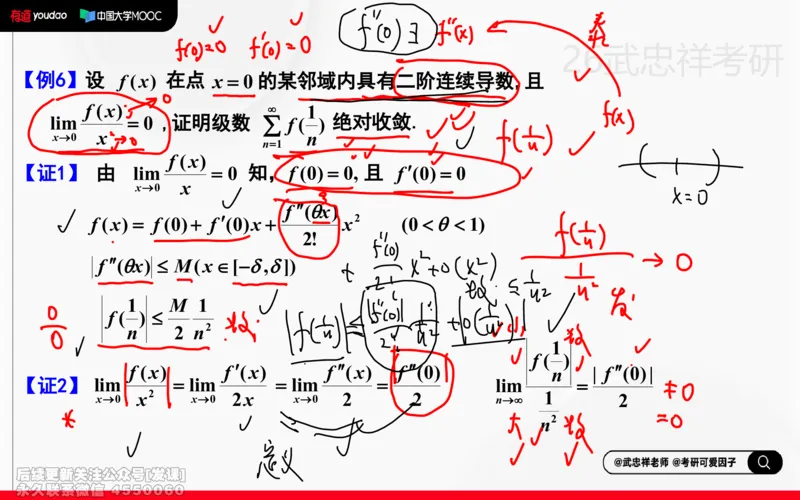 有道youdao 中国大学MOOC
f(0)=0 f'(0)=0 f''(0)∃ f''(x)
26武忠祥考研
【例6】设 f(x) 在点 x=0 的某邻域内具有二阶连续导数,且
lim_{x→0} f(x)/x = 0 ,证明级数 ∑_{n=1}^{∞} f(1/n) 绝对收敛.
f(1/n) f(x)
x=0
【证1】 由 lim_{x→0} f(x)/x = 0 知, f(0)=0, 且 f'(0)=0
f(x) = f(0) + f'(0)x + f''(θx)/2! x² (0<θ<1)
+ f''(0)/2! x² + o(x²)
f(1/n) / 1/n² → 0
|f''(θx)| ≤ M (x∈[-δ,δ])
|f(1/n)| ≤ M/2 1/n²
0/0
|f(1/n)| ≤ |f''(0)|/2 1/n² + |o(1/n²)| ≤ 1/n²
【证2】 lim_{x→0} |f(x)/x²| = lim_{x→0} f'(x)/2x = lim_{x→0} f''(x)/2 = f''(0)/2
lim_{n→∞} |f(1/n)| / 1/n² = |f''(0)|/2
≠0
=0
定义
@武忠祥老师 @考研可爱因子
后续更新关注公众号[发课]
永久联系微信 4550060